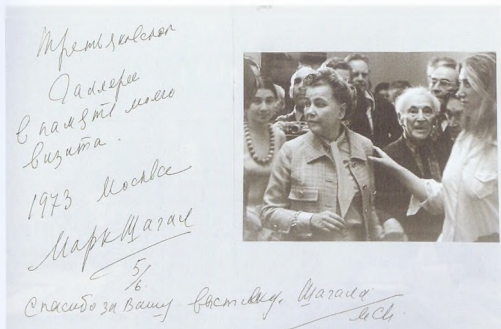 Третьяковской
Галлереи
в память моего
визита.
1973 Москва
Марк Шагал
5/6.
Спасибо за Вашу выставку. Шагала